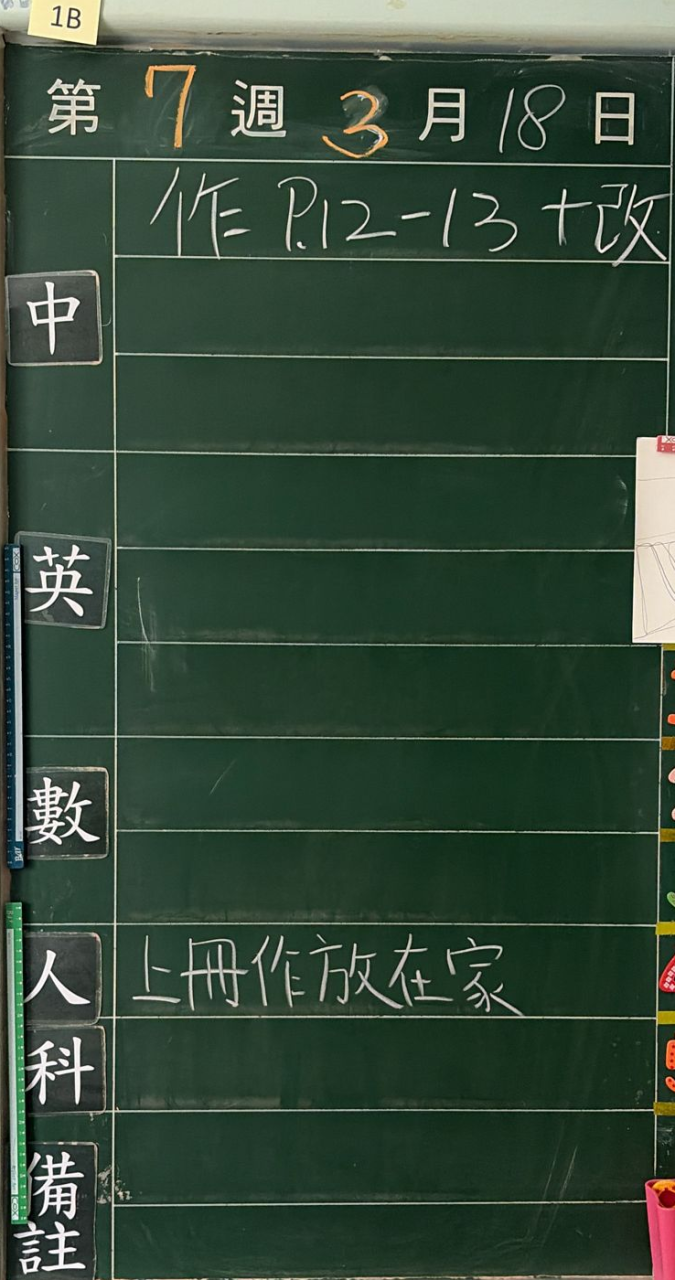 1B
第7週3月18日
作 P.12-13+改
中
英
數
人 上冊作放在家
科
備註